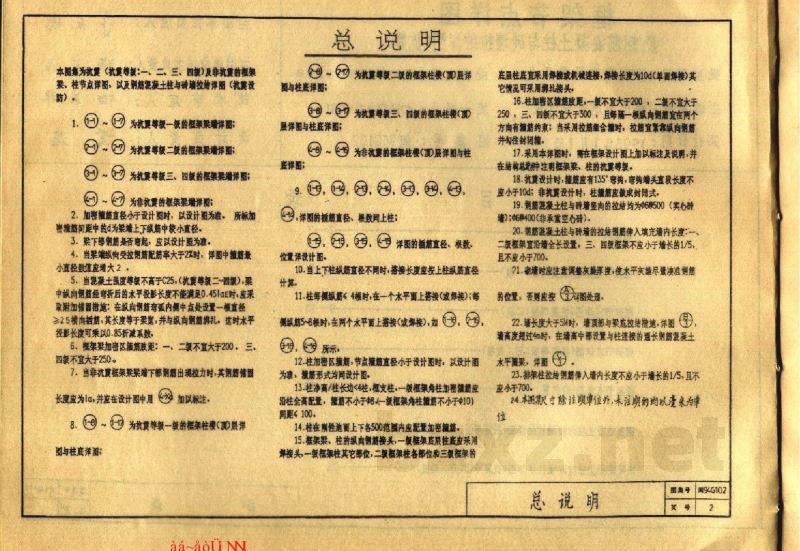 总说明
本图集为抗震(抗震等级:一、二、三、四级)及非抗震的框架
梁、柱节点详图,以及钢筋混凝土柱与砖墙拉结详图(抗震设
防)。
1. 1-1 ~ 1-7 为抗震等级一级的框架梁端详图;
2-1 ~ 2-7 为抗震等级二级的框架梁端详图;
3-1 ~ 3-7 为抗震等级三、四级的框架梁端详图;
4-1 ~ 4-7 为非抗震的框架梁端详图;
2. 加密箍筋直径小于设计图时,以设计图为准。所标加
密箍筋间距中的d为梁墙上下纵筋中较小直径。
3. 梁下部钢筋是否弯起,应以设计图为准。
4. 当梁端纵向受拉钢筋配筋率大于2%时,详图中箍筋最
小直径数值应增大2。
5. 当混凝土强度等级不高于C25,(抗震等级二~四级),梁
中纵向钢筋经弯折后的水平投影长度不能满足0.45laE时,应采
取附加锚固措施:在纵向钢筋弯弧内侧中点处设置一根直径
≥25横向插筋,其长度等于梁宽,并与纵向钢筋绑扎。这时水平
投影长度可乘以0.85折减系数。
6. 框架梁加密区箍筋肢距:一、二级不宜大于200、三、
四级不宜大于250。
7. 当非抗震框架梁梁端下部钢筋出现拉力时,其钢筋锚固
长度应为la,并应在设计图中用 加以标注。
8. 1-8 ~ 1-17 为抗震等级一级的框架柱楼(顶)层详
图与柱底详图;
2-8 ~ 2-17 为抗震等级二级的框架柱楼(顶)层详
图与柱底详图;
3-8 ~ 3-17 为抗震等级三、四级的框架柱楼(顶)
层详图与柱底详图;
4-8 ~ 为非抗震的框架柱楼(顶)层详图与柱
底详图;
9.
,详图的插筋直径、根数同上柱;
详图的插筋直径、根数、
位置详设计图。
10. 当上下柱纵筋直径不同时,搭接长度应按上柱纵筋直径
计算。
11. 柱每侧纵筋≤4根时,在一个水平面上搭接(或焊接);每
侧纵筋5~8根时,在两个水平面上搭接(或焊接),如
所示。
12. 柱加密区箍筋,节点箍筋直径小于设计图时,以设计图
为准,箍筋形式均同设计图。
13. 柱净高/柱长边<4柱,框支柱,一级框架角柱加密箍筋应
沿柱全高配置,箍筋不小于Φ8,(一级框架角柱箍筋不小于Φ10)
间距≤100。
14. 柱在刚性地面上下各500范围内应配置加密箍筋。
15. 框架梁、柱的纵向钢筋接头,一级框架底层柱底应采用
焊接头,一级框架柱其它部位,二级框架柱各部位和三级框架的
底层柱底宜采用焊接或机械连接,焊接长度为10d(单面焊接)其
它情况可采用绑扎接头。
16. 柱加密区箍筋肢距,一级不宜大于200,二级不宜大于
250,三、四级不宜大于300,且每隔一根纵向钢筋宜在两个
方向有箍筋约束;当采用拉筋组合箍时,拉筋宜紧靠纵向钢筋
并勾住封闭箍。
17. 采用本详图时,需在框架设计图上加以标注及说明,并
在结构总说明中注明框架梁、柱的抗震等级。
18. 抗震设计时,箍筋应有135°弯钩,弯钩端头直段长度不
应小于10d;非抗震设计时,柱箍筋应做成封闭式。
19. 钢筋混凝土柱与砖墙竖向的拉结均为Φ6@500(实心砖
墙);Φ6@400(非承重空心砖)。
20. 钢筋混凝土柱与砖墙的拉结钢筋伸入填充墙内长度:一、
二级框架宜沿墙全长设置,三、四级框架不应小于墙长的1/5,
且不应小于700。
21. 砌墙时应注意调整灰缝厚度,使水平灰缝尽量凑足钢筋
的位置,否则应按 图处理。
22. 墙长度大于5M时,墙顶部与梁应拉结措施,详图 ,
墙高度超过4m时,在墙高中部设置与柱连接的通长钢筋混凝土
水平圈梁,详图 。
23. 排架柱拉结钢筋伸入墙内长度不应小于墙长的1/5,且不
应小于700。
24. 本图集尺寸除注明单位外,未注明的均以毫米为单
位
总说明
图集号 闽94G102
页号 2